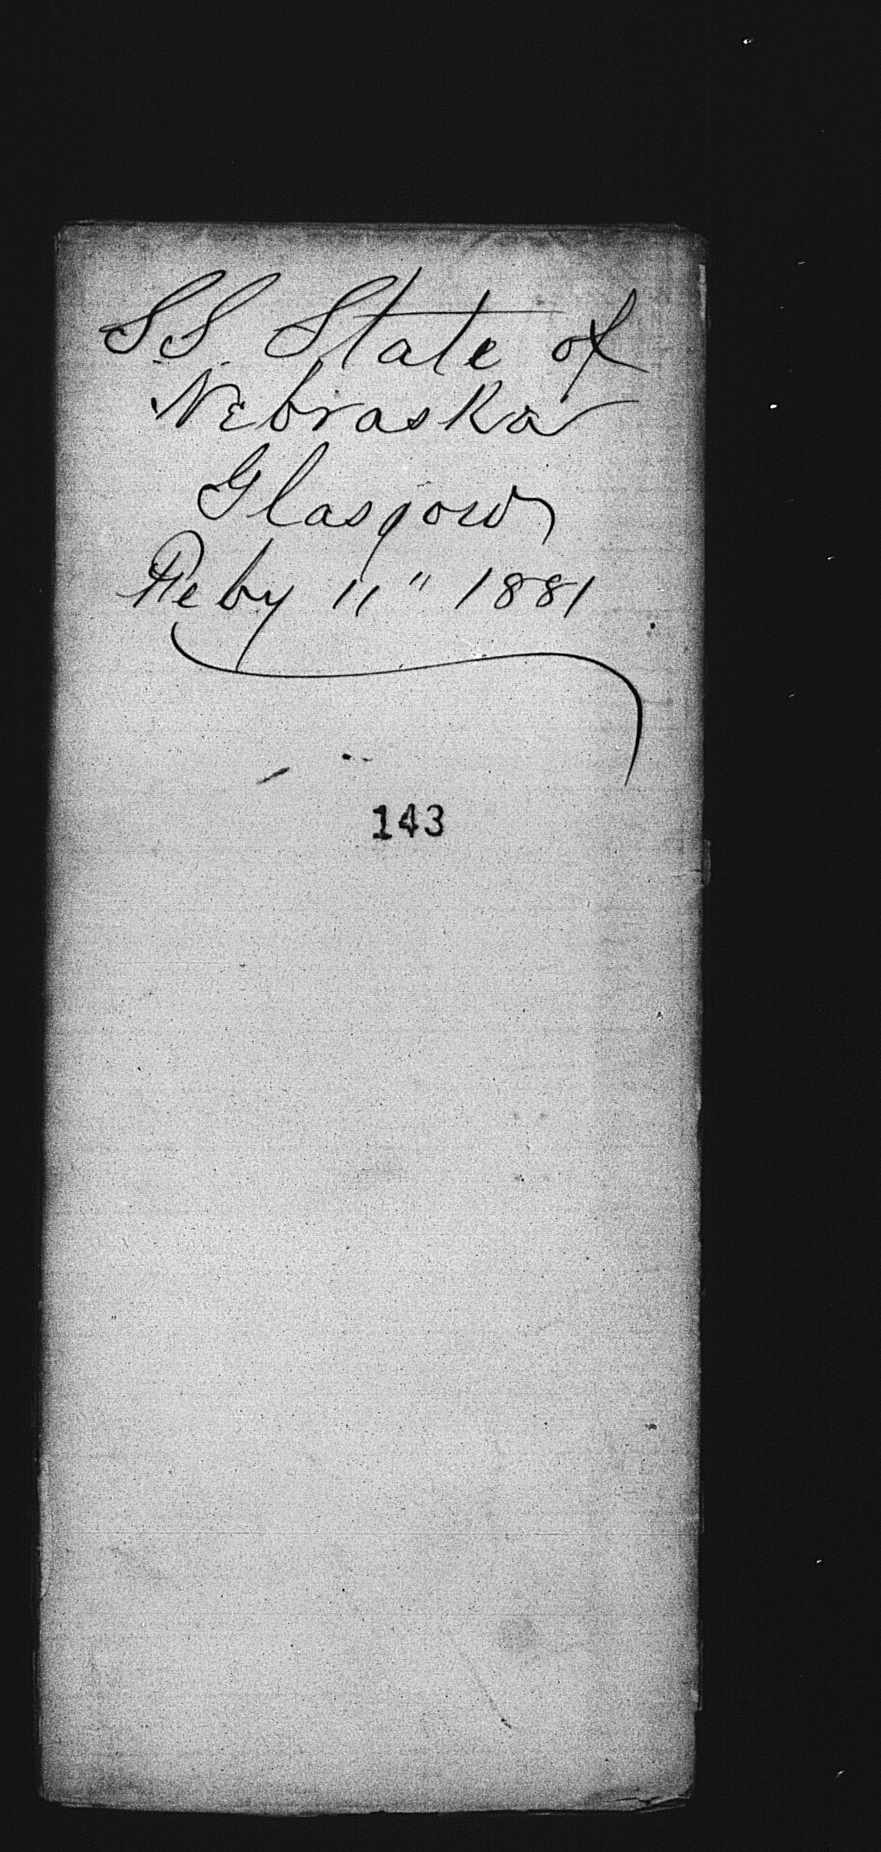 S.S. State of
Nebraska
Glasgow
Feby 11" 1881
143